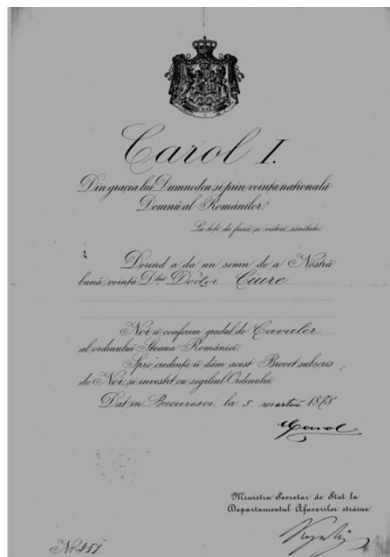 Carol I.
Din gracia lui Dumnedeu, si prin vointa nationala
Domnul al Românilor
La toti de facia si viitori, sănĕtate
Dorind a da un semn de a Nostră
bună vointă Dlui Doctor Ciure
Noi ii conferim gradul de Cavaler
al ordinului Steaua României
Spre credentă ii dăm acest Brevet subscris
de Noi, si investit cu sigiliul Ordinului
Dat in Bucuresci la 5 martiŭ 1878
Carol
Ministru Secretar de Stat la
Departamentul Afacerilor străine
No 451